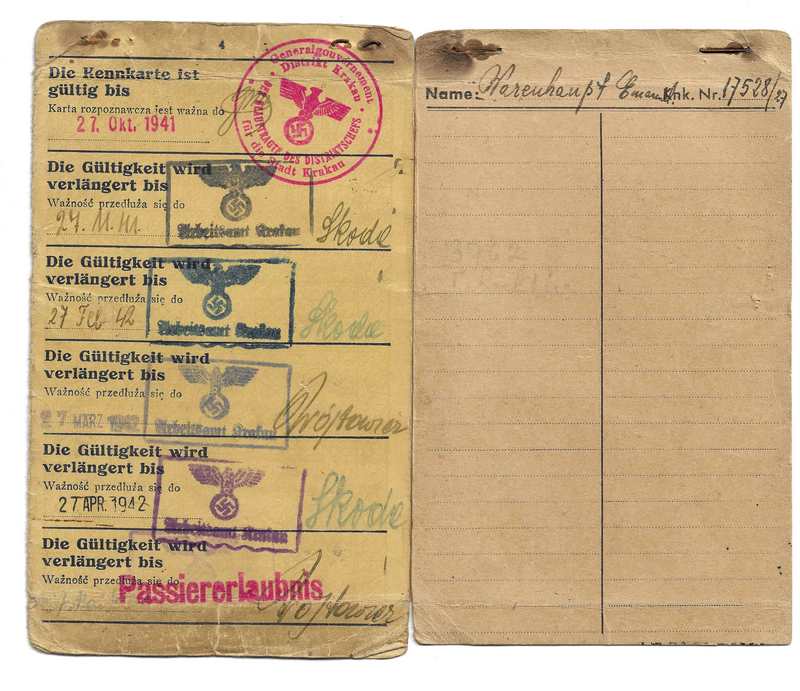 4
Die Kennkarte ist
gültig bis
Karta rozpoznawcza jest ważna do
27. Okt. 1941
Generalgouvernement
Distrikt Krakau
DES DISTRIKTSCHEFS
für die Stadt Krakau
Die Gültigkeit wird
verlängert bis
Ważność przedłuża się do
Arbeitsamt Krakau
Skoda
Die Gültigkeit wird
verlängert bis
Ważność przedłuża się do
27 Feb 42
Arbeitsamt Krakau
Skoda
Die Gültigkeit wird
verlängert bis
Ważność przedłuża się do
27 MÄRZ 1942
Arbeitsamt Krakau
Die Gültigkeit wird
verlängert bis
Ważność przedłuża się do
27 APR. 1942
Arbeitsamt Krakau
Skoda
Die Gültigkeit wird
verlängert bis
Ważność przedłuża się do
Passiererlaubnis
Name: Warenhaupt Knk. Nr. 17528/27